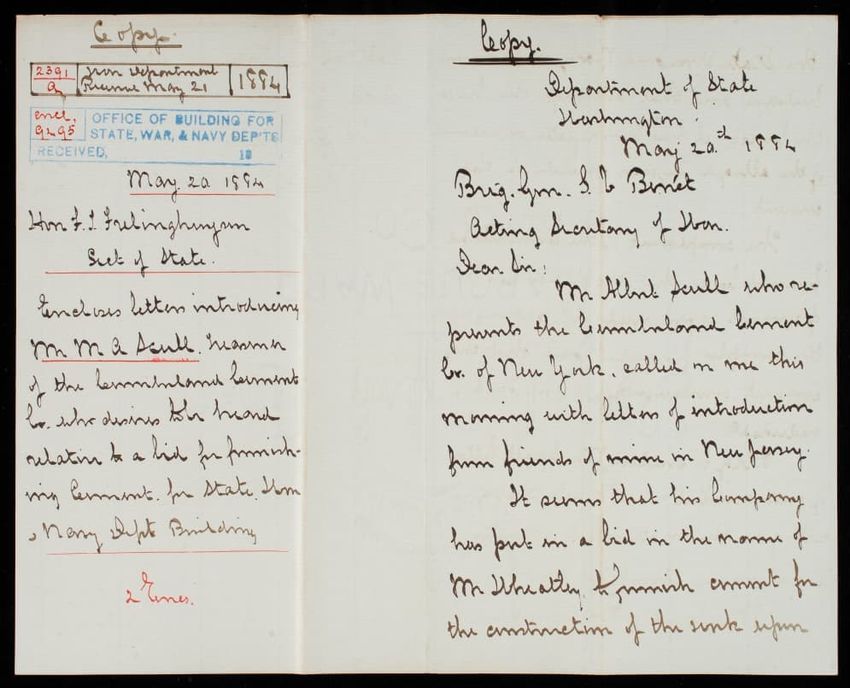 Copy.
2391
A
War Department
Received May 21
1884
encl.
9495
OFFICE OF BUILDING FOR
STATE, WAR, & NAVY DEP'TS
RECEIVED, 18
May. 20. 1884
Hon F. T. Frelinghuysen
Sect. of State.
Encloses letters introducing
Mr M A Scull. Treasurer
of the Cumberland Cement
Co. who desires to be heard
relative to a bid for furnish-
ing Cement. for State. War
& Navy Dept Building
2 Encs.
Copy.
Department of State
Washington.
May 20.th 1884
Brig. Gen. S. V Benét
Acting Secretary of War.
Dear Sir:
Mr Albert Scull who re-
presents the Cumberland Cement
Co. of New York. called on me this
morning with letters of introduction
from friends of mine in New Jersey.
It seems that his Company
has put in a bid in the name of
Mr Wheatley, to furnish cement for
the construction of the work upon